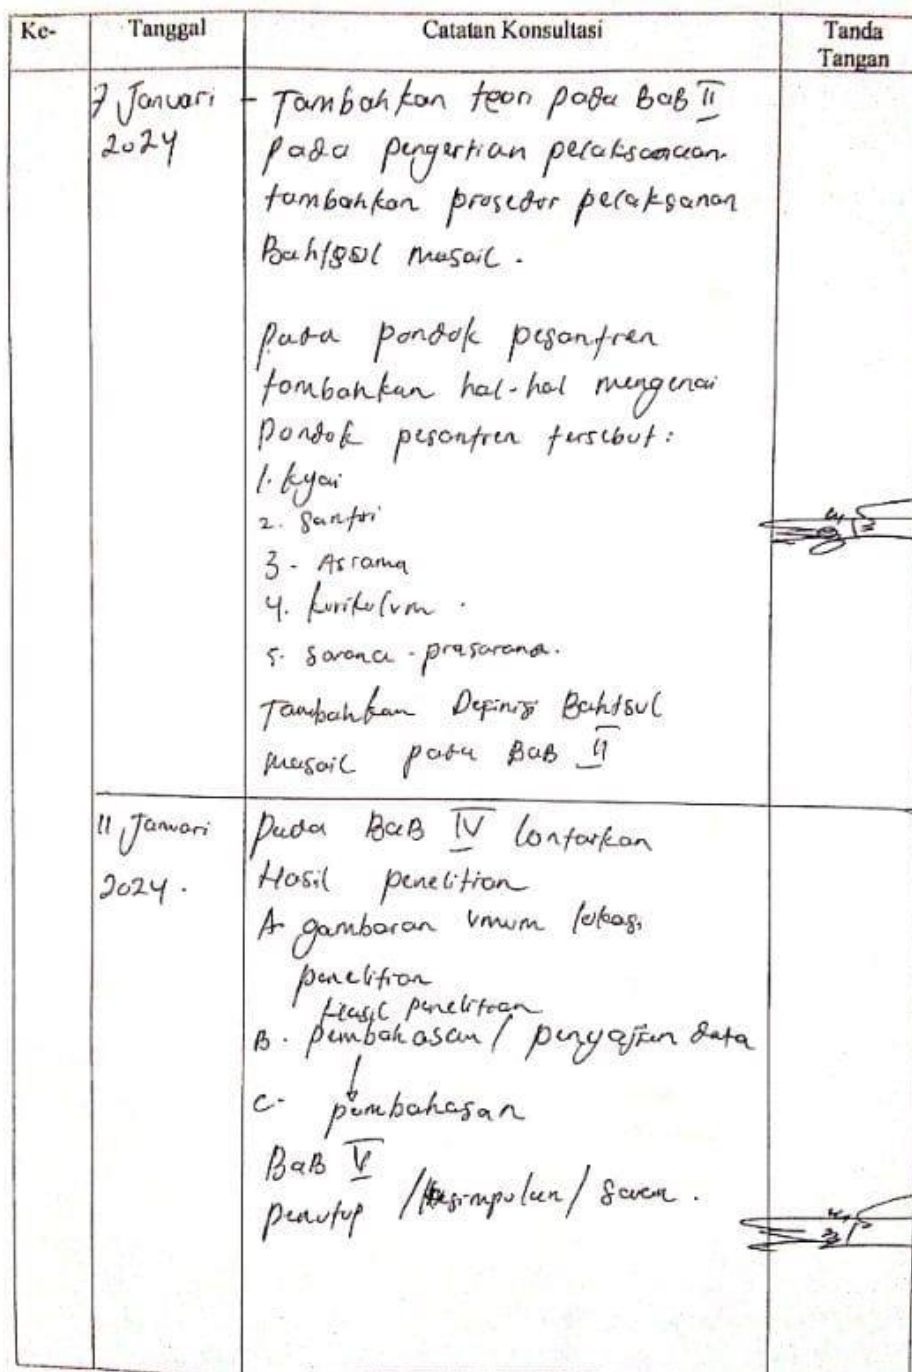 Ke- Tanggal Catatan Konsultasi Tanda Tangan
7 Januari 2024
- Tambahkan teori pada BaB II
pada pengertian pelaksanaan.
tambahkan prosedur pelaksanan
Bahtsul masail.
Pada pondok pesantren
tambahkan hal-hal mengenai
Pondok pesantren tersebut:
1. kyai
2. Santri
3. Asrama
4. kurikulum.
5. sarana-prasarana.
Tambahkan Definisi Bahtsul
masail pada BaB II
11 Januari 2024.
Pada BaB IV lontarkan
Hasil penelitian
A gambaran umum lokasi
penelitian
Hasil penelitian
B. pembahasan / penyajian data
C. pembahasan
BaB V
penutup / kesimpulan / saran.